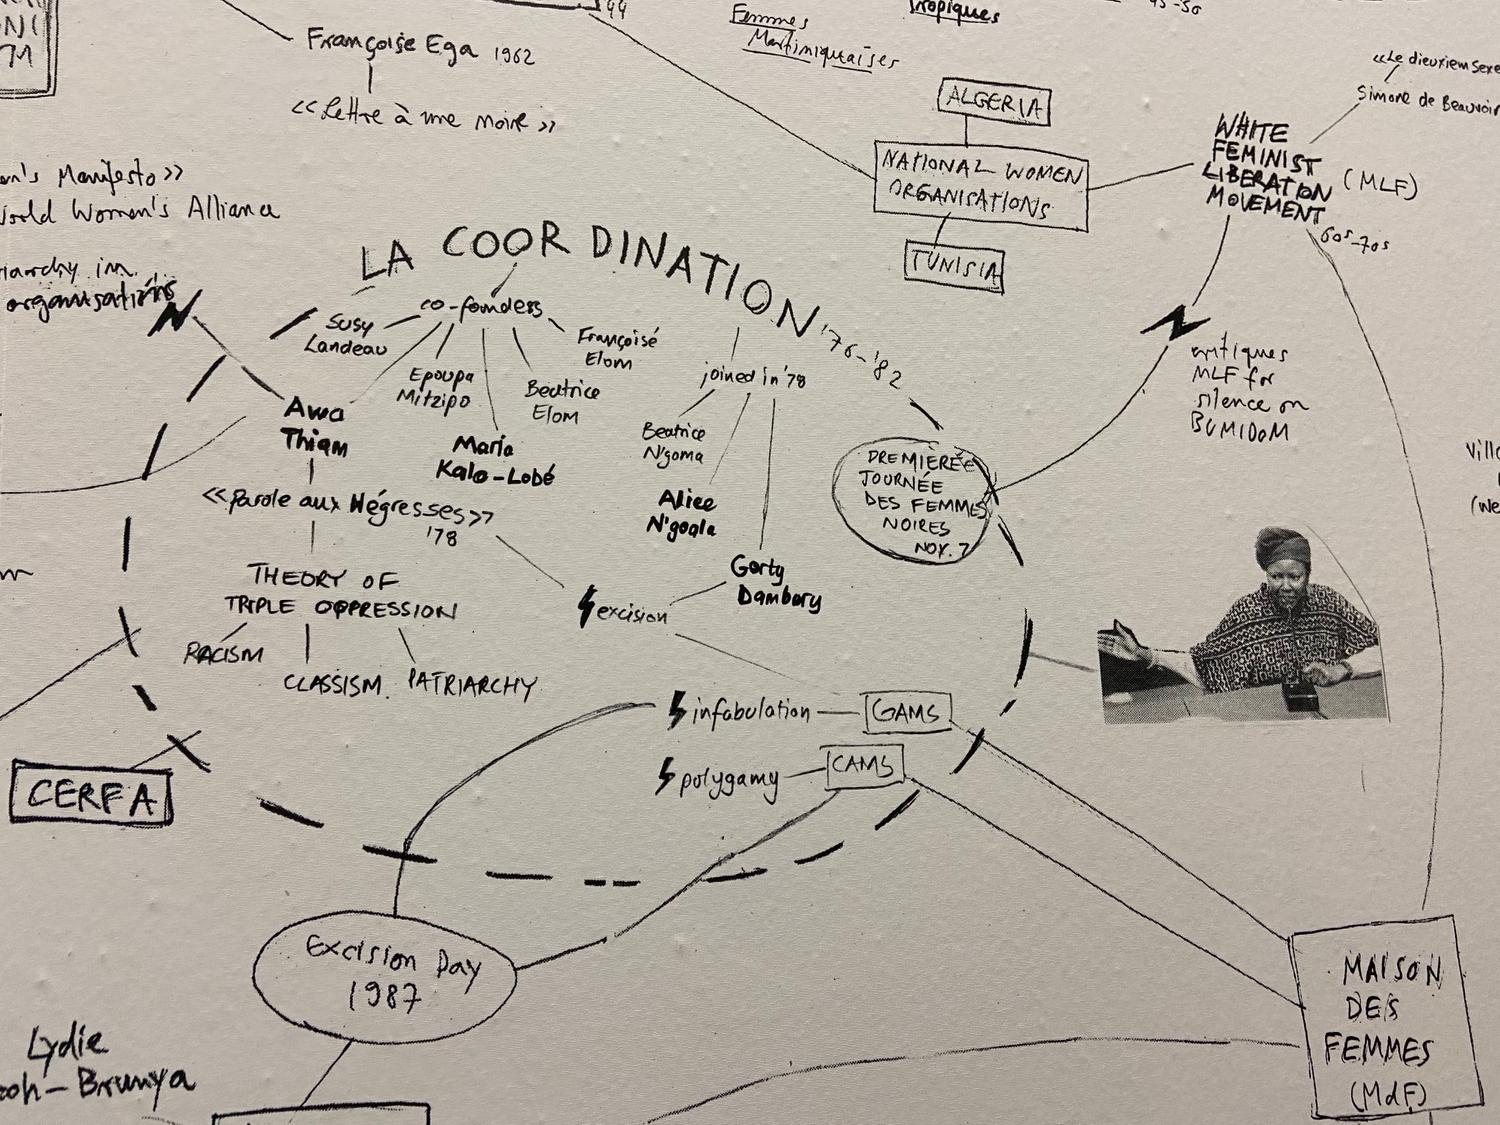 44
Femmes
Martiniquaises
Tropiques
45-50
Françoise Ega 1962
<<Lettre à une noire>>
<<Le dieuxiem sexe
Simone de Beauvoir
ALGERIA
NATIONAL WOMEN
ORGANISATIONS
TUNISIA
WHITE
FEMINIST
LIBERATION
MOVEMENT
(MLF)
60s-70s
en's Manifesto>>
World Women's Alliance
riarchy in
organisations
LA COORDINATION
'76-'82
co-founders
Susy
Landeau
Awa
Thiam
Epoupa
Mitzipo
Maria
Kala-Lobé
Beatrice
Elom
Françoisé
Elom
joined in '78
Beatrice
N'goma
Alice
N'goala
Gerty
Dambury
PREMIÈRÉE
JOURNÉE
DES FEMMES
NOIRES
NOV. 7
critiques
MLF for
silence on
BUMIDOM
<<Parole aux Négresses>>
'78
THEORY OF
TRIPLE OPPRESSION
RACISM
CLASSISM
PATRIARCHY
excision
infabulation
GAMS
polygamy
CAMS
CERFA
Excision Day
1987
Lydie
ooh-Brunya
MAISON
DES
FEMMES
(MdF)